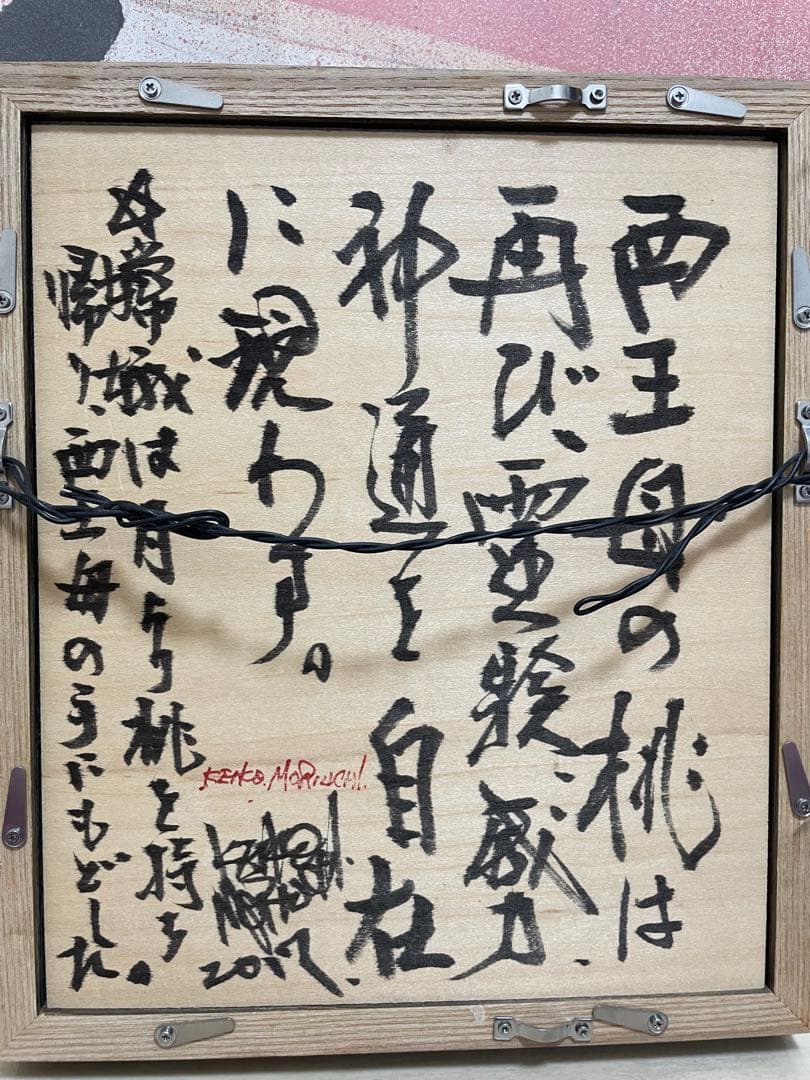 西王母の桃は
再び、霊験、威力、
神通を自在
に現わす。
☆嫦娥は月より桃を持ち
帰り、西王母の手にもどした。
KENKO.MORIUCHI.
2017